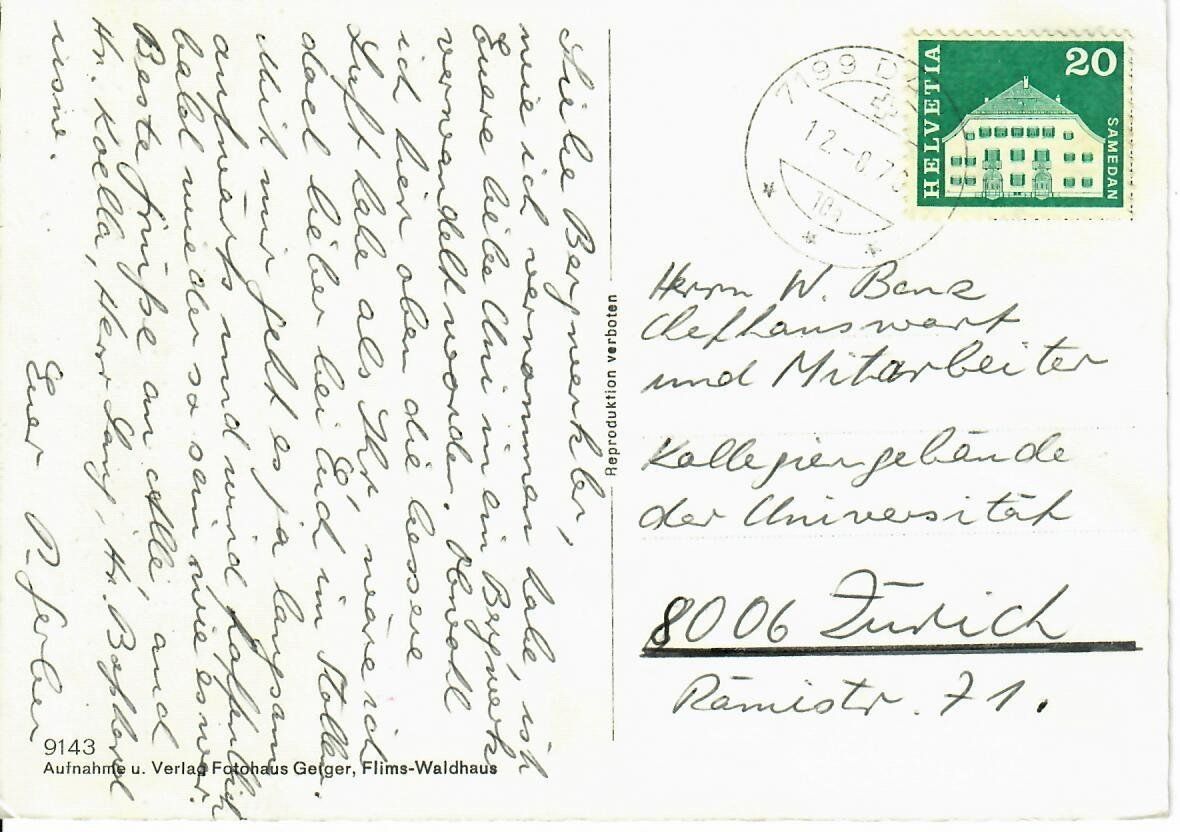 Liebe Bergwerkler,
wie ich vernommen habe, ist
Euere liebe Uni in ein Bergwerk
verwandelt worden. Obwohl
ich hier oben die bessere
Luft habe als Ihr, wäre ich
doch lieber bei Euch im Stollen.
Mit mir geht es ja langsam
aufwärts und wird hoffentlich
bald wieder so sein wie es war.
Beste Grüße an Alle, und
Hr. Koella, Herr Lang, Hr. Boßhard
usw.
Euer P. Gerber
9143
Aufnahme u. Verlag Fotohaus Geiger, Flims-Waldhaus
Reproduktion verboten
7199 D
12.-8.7
HELVETIA
20
SAMEDAN
Herrn W. Benz
Chefhauswart
und Mitarbeiter
Kollegiengebäude
der Universität
8006 Zürich
Rämistr. 71.